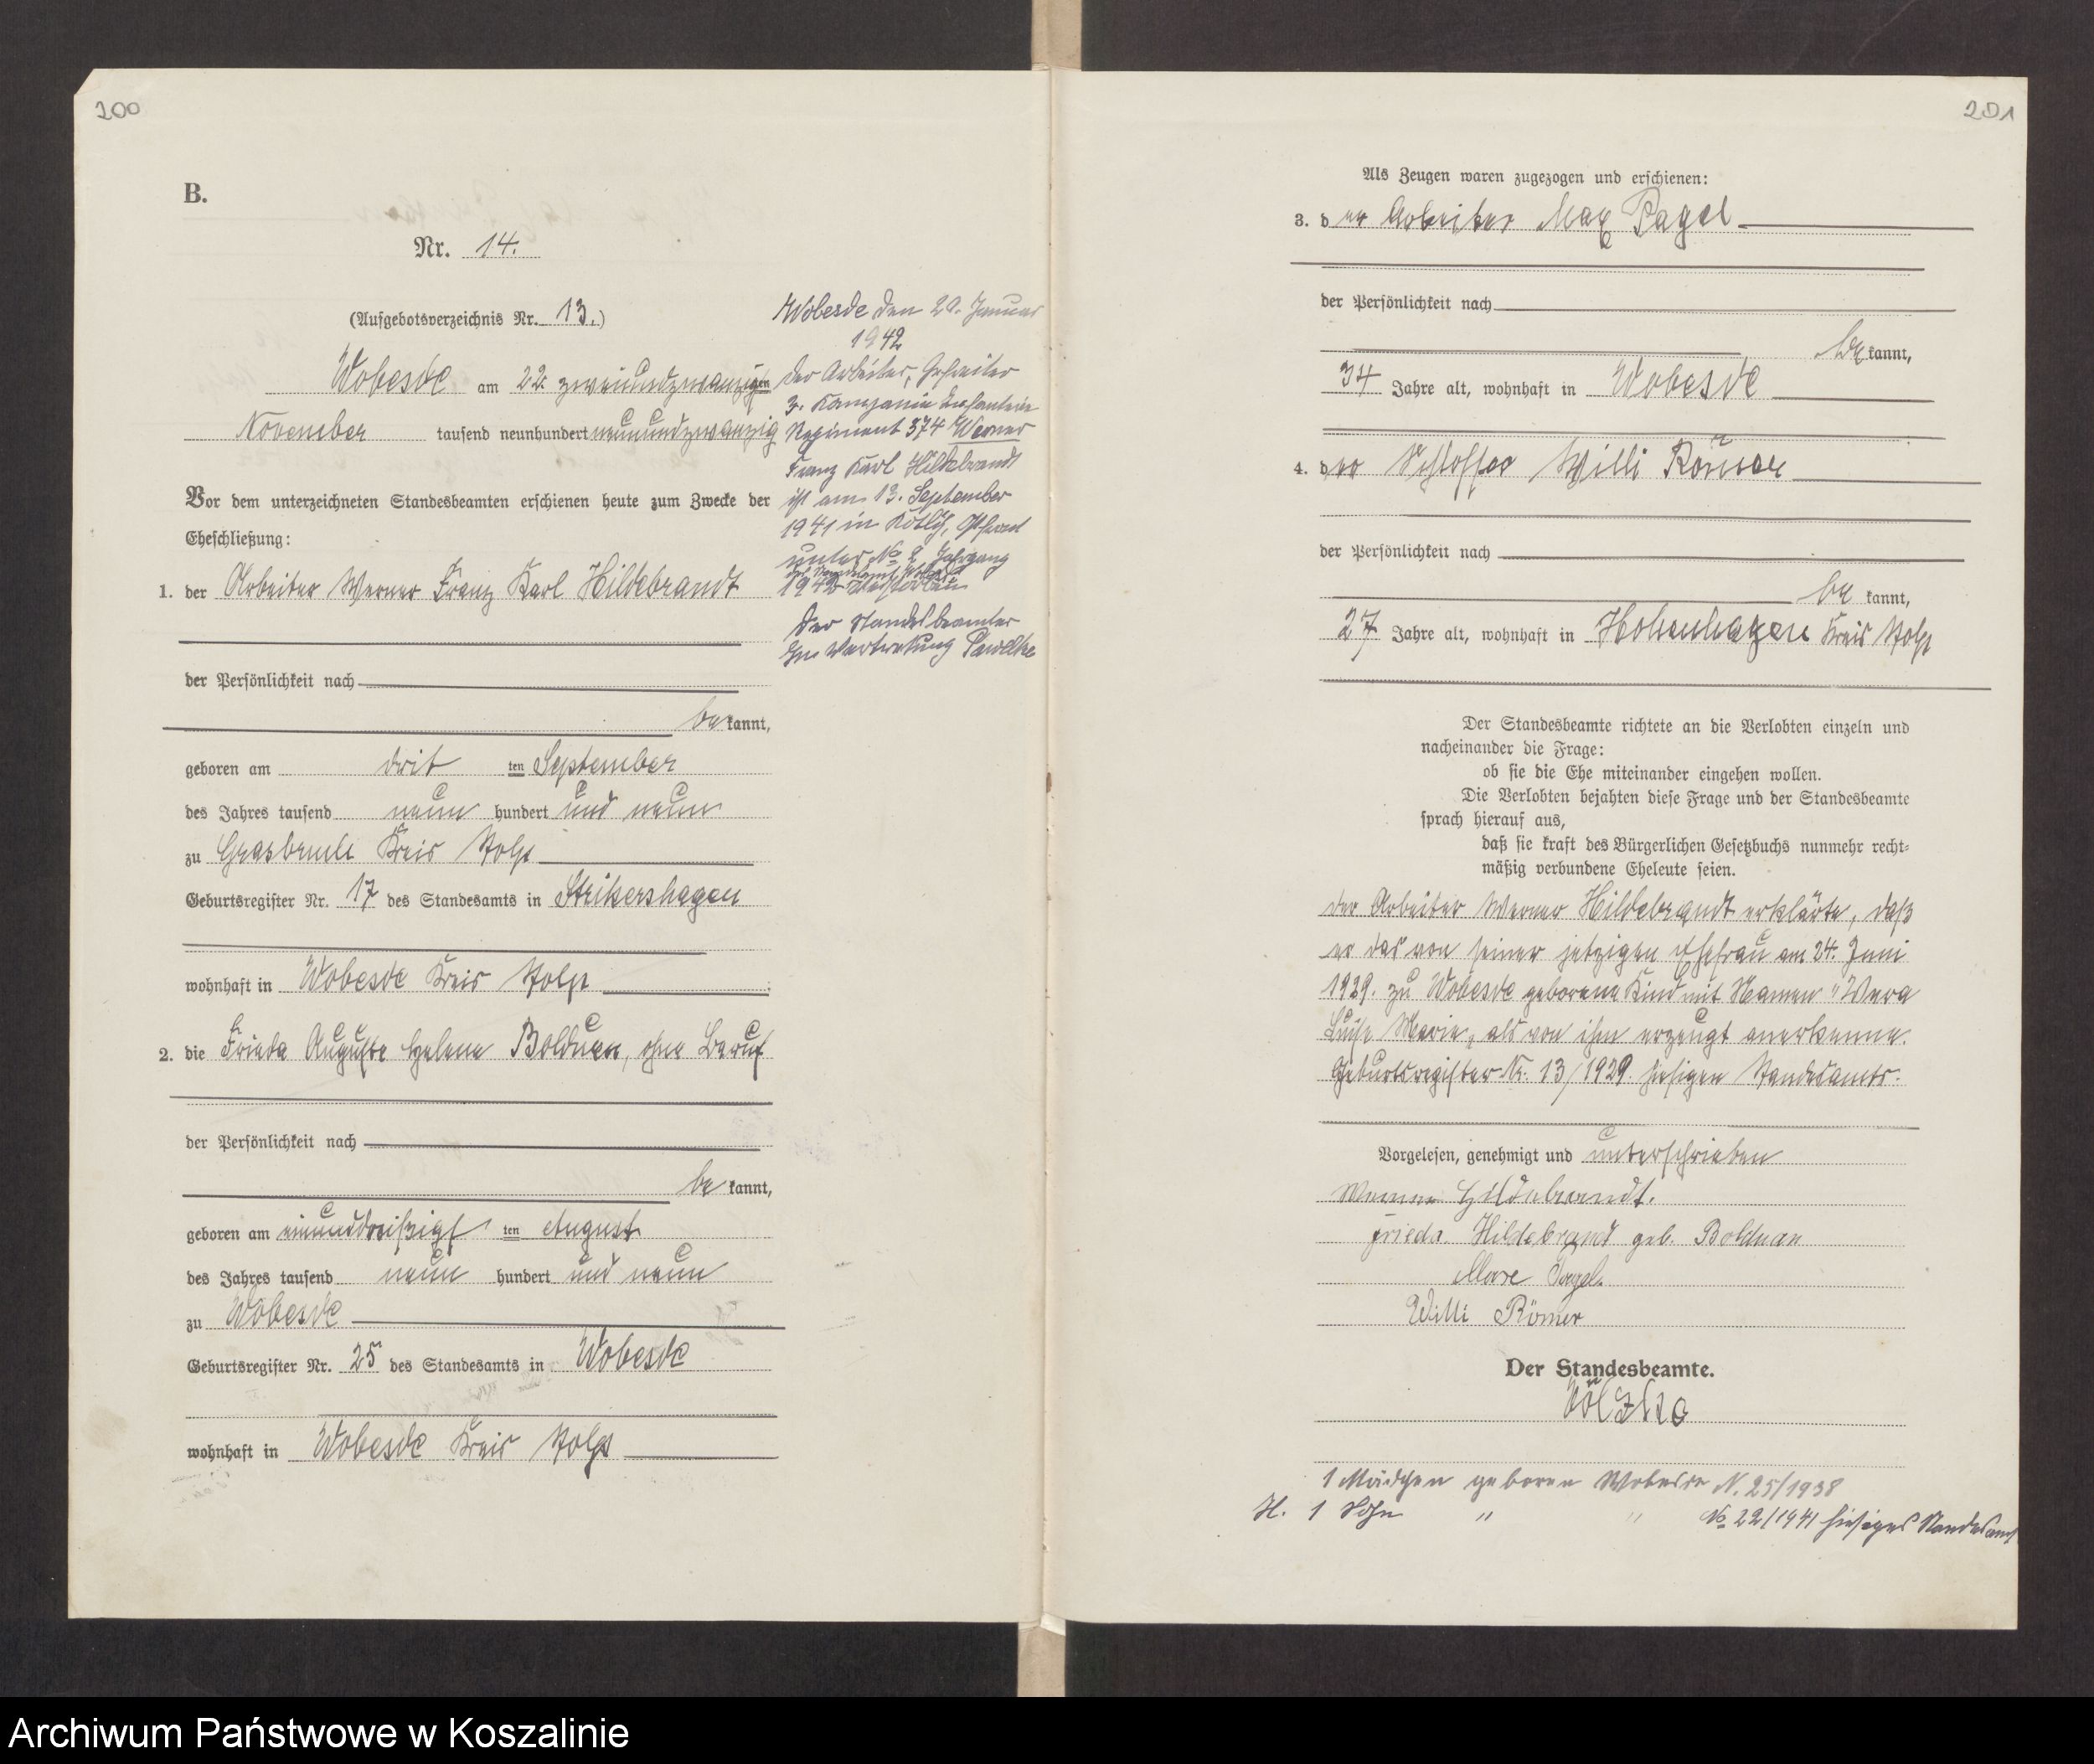 200
B.
Nr. 14.
(Aufgebotsverzeichnis Nr. 13.)
Wobesde am 22. zweiundzwanzigsten
November tausend neunhundert neunundzwanzig
Vor dem unterzeichneten Standesbeamten erschienen heute zum Zwecke der
Eheschließung:
1. der Arbeiter Werner Franz Karl Hildebrandt
der Persönlichkeit nach
bekannt,
geboren am dritten September
des Jahres tausend neun hundert und neun
zu Kreis Stolp
Geburtsregister Nr. 17 des Standesamts in
wohnhaft in Wobesde Kreis Stolp
2. die Frieda Auguste Helene Bolduan, ohne Beruf
der Persönlichkeit nach
bekannt,
geboren am einunddreißigsten August
des Jahres tausend neun hundert und neun
zu Wobesde
Geburtsregister Nr. 25 des Standesamts in Wobesde
wohnhaft in Wobesde Kreis Stolp
Wobesde den 20. Januar
1942
Der Arbeiter, Gefreiter
3. Kompanie Infanterie
Regiment 374 Werner
Franz Karl Hildebrandt
ist am 13. September
1941 in
unter No 2 Jahrgang
1942 verstorben
Der Standesbeamte
In Vertretung
201
Als Zeugen waren zugezogen und erschienen:
3. der Arbeiter Max Pagel
der Persönlichkeit nach
bekannt,
34 Jahre alt, wohnhaft in Wobesde
4. der Schlosser Willi Römer
der Persönlichkeit nach
bekannt,
27 Jahre alt, wohnhaft in Kreis Stolp
Der Standesbeamte richtete an die Verlobten einzeln und
nacheinander die Frage:
ob sie die Ehe miteinander eingehen wollen.
Die Verlobten bejahten diese Frage und der Standesbeamte
sprach hierauf aus,
daß sie kraft des Bürgerlichen Gesetzbuchs nunmehr recht-
mäßig verbundene Eheleute seien.
Der Arbeiter Werner Hildebrandt erklärte, daß
er das von seiner jetzigen Ehefrau am 24. Juni
1929. zu Wobesde geborene Kind mit Namen "Wera
Luise Marie" als von ihm erzeugt anerkenne.
Geburtsregister Nr. 13/1929. hiesigen Standesamts.
Vorgelesen, genehmigt und unterschrieben
Werner Hildebrandt.
Frieda Hildebrandt geb. Bolduan
Max Pagel.
Willi Römer
Der Standesbeamte.
1 Mädchen geboren Wobesde N. 25/1938
H. 1 Sohn " " No 22/1941 hiesiges Standesamt
Archiwum Państwowe w Koszalinie